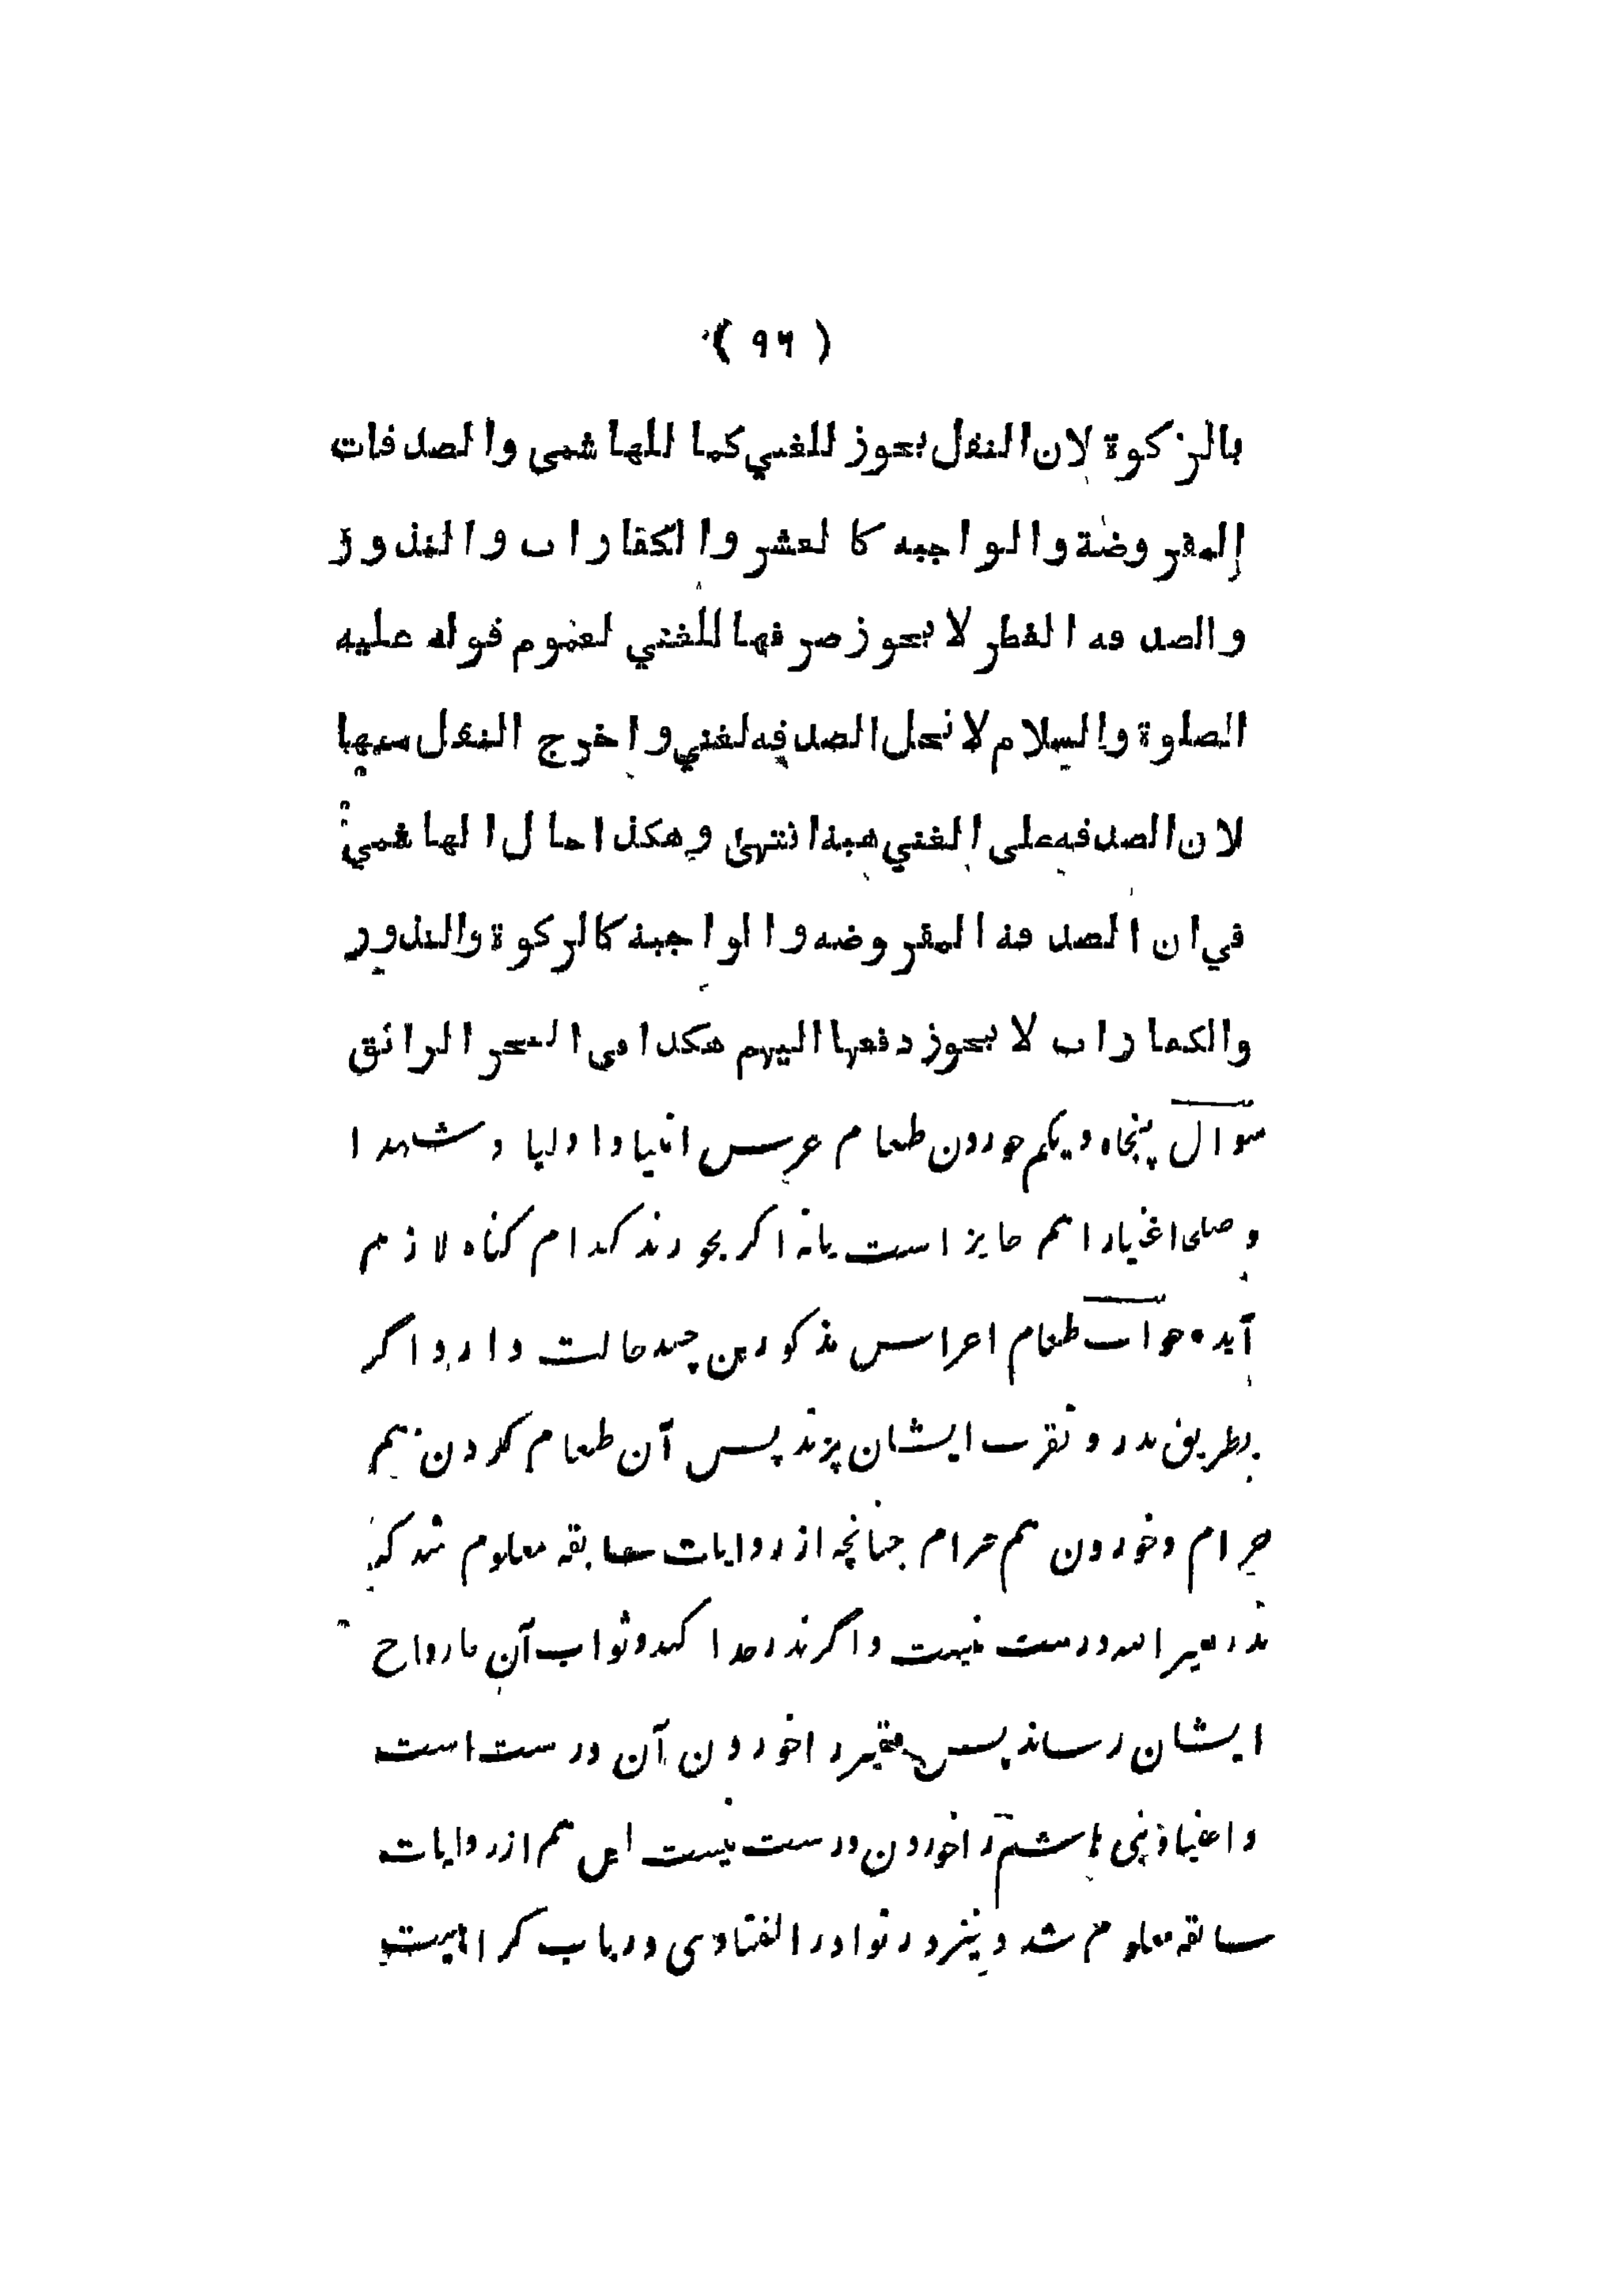 ( ٩٦ )
بالزكوة لان النفل يجوز للغني كما للهاشمي والصدقات
المفروضة والواجبة كالعشر والكفارات والنذور
والصدقة الفطر لا يجوز صرفها للغني لعموم قوله عليه
الصلوة والسلام لا تحل الصدقة لغني واخرج النفل منها
لان الصدقة على الغني هبة انتهى وهكذا حال الهاشمي
في ان الصدقة المفروضة والواجبة كالزكوة والنذور
والكفارات لا يجوز دفعها اليهم هكذا في البحر الرائق
سوال پنجاه ويكم خوردن طعام عرس انبيا واوليا و شهدا
و صلحا اغنيارا هم جايز است يا نه اگر بخورند كدام گناه لازم
آيد • جواب طعام اعراس مذكورين چند حالت دارد اگر
بطريق نذر و تقرب ايشان پزند پس آن طعام كردن هم
حرام و خوردن هم حرام چنانچه از روايات سابقه معلوم شد كه
نذر لغير الله درست نيست و اگر نذر خدا كند و ثواب آن بارواح
ايشان رساند پس فقير را خوردن آن درست است
و اغنيا و بني هاشم را خوردن درست نيست اين هم از روايات
سابقه معلوم شد و نيز در نوادر الفتاوى در باب كراهيت